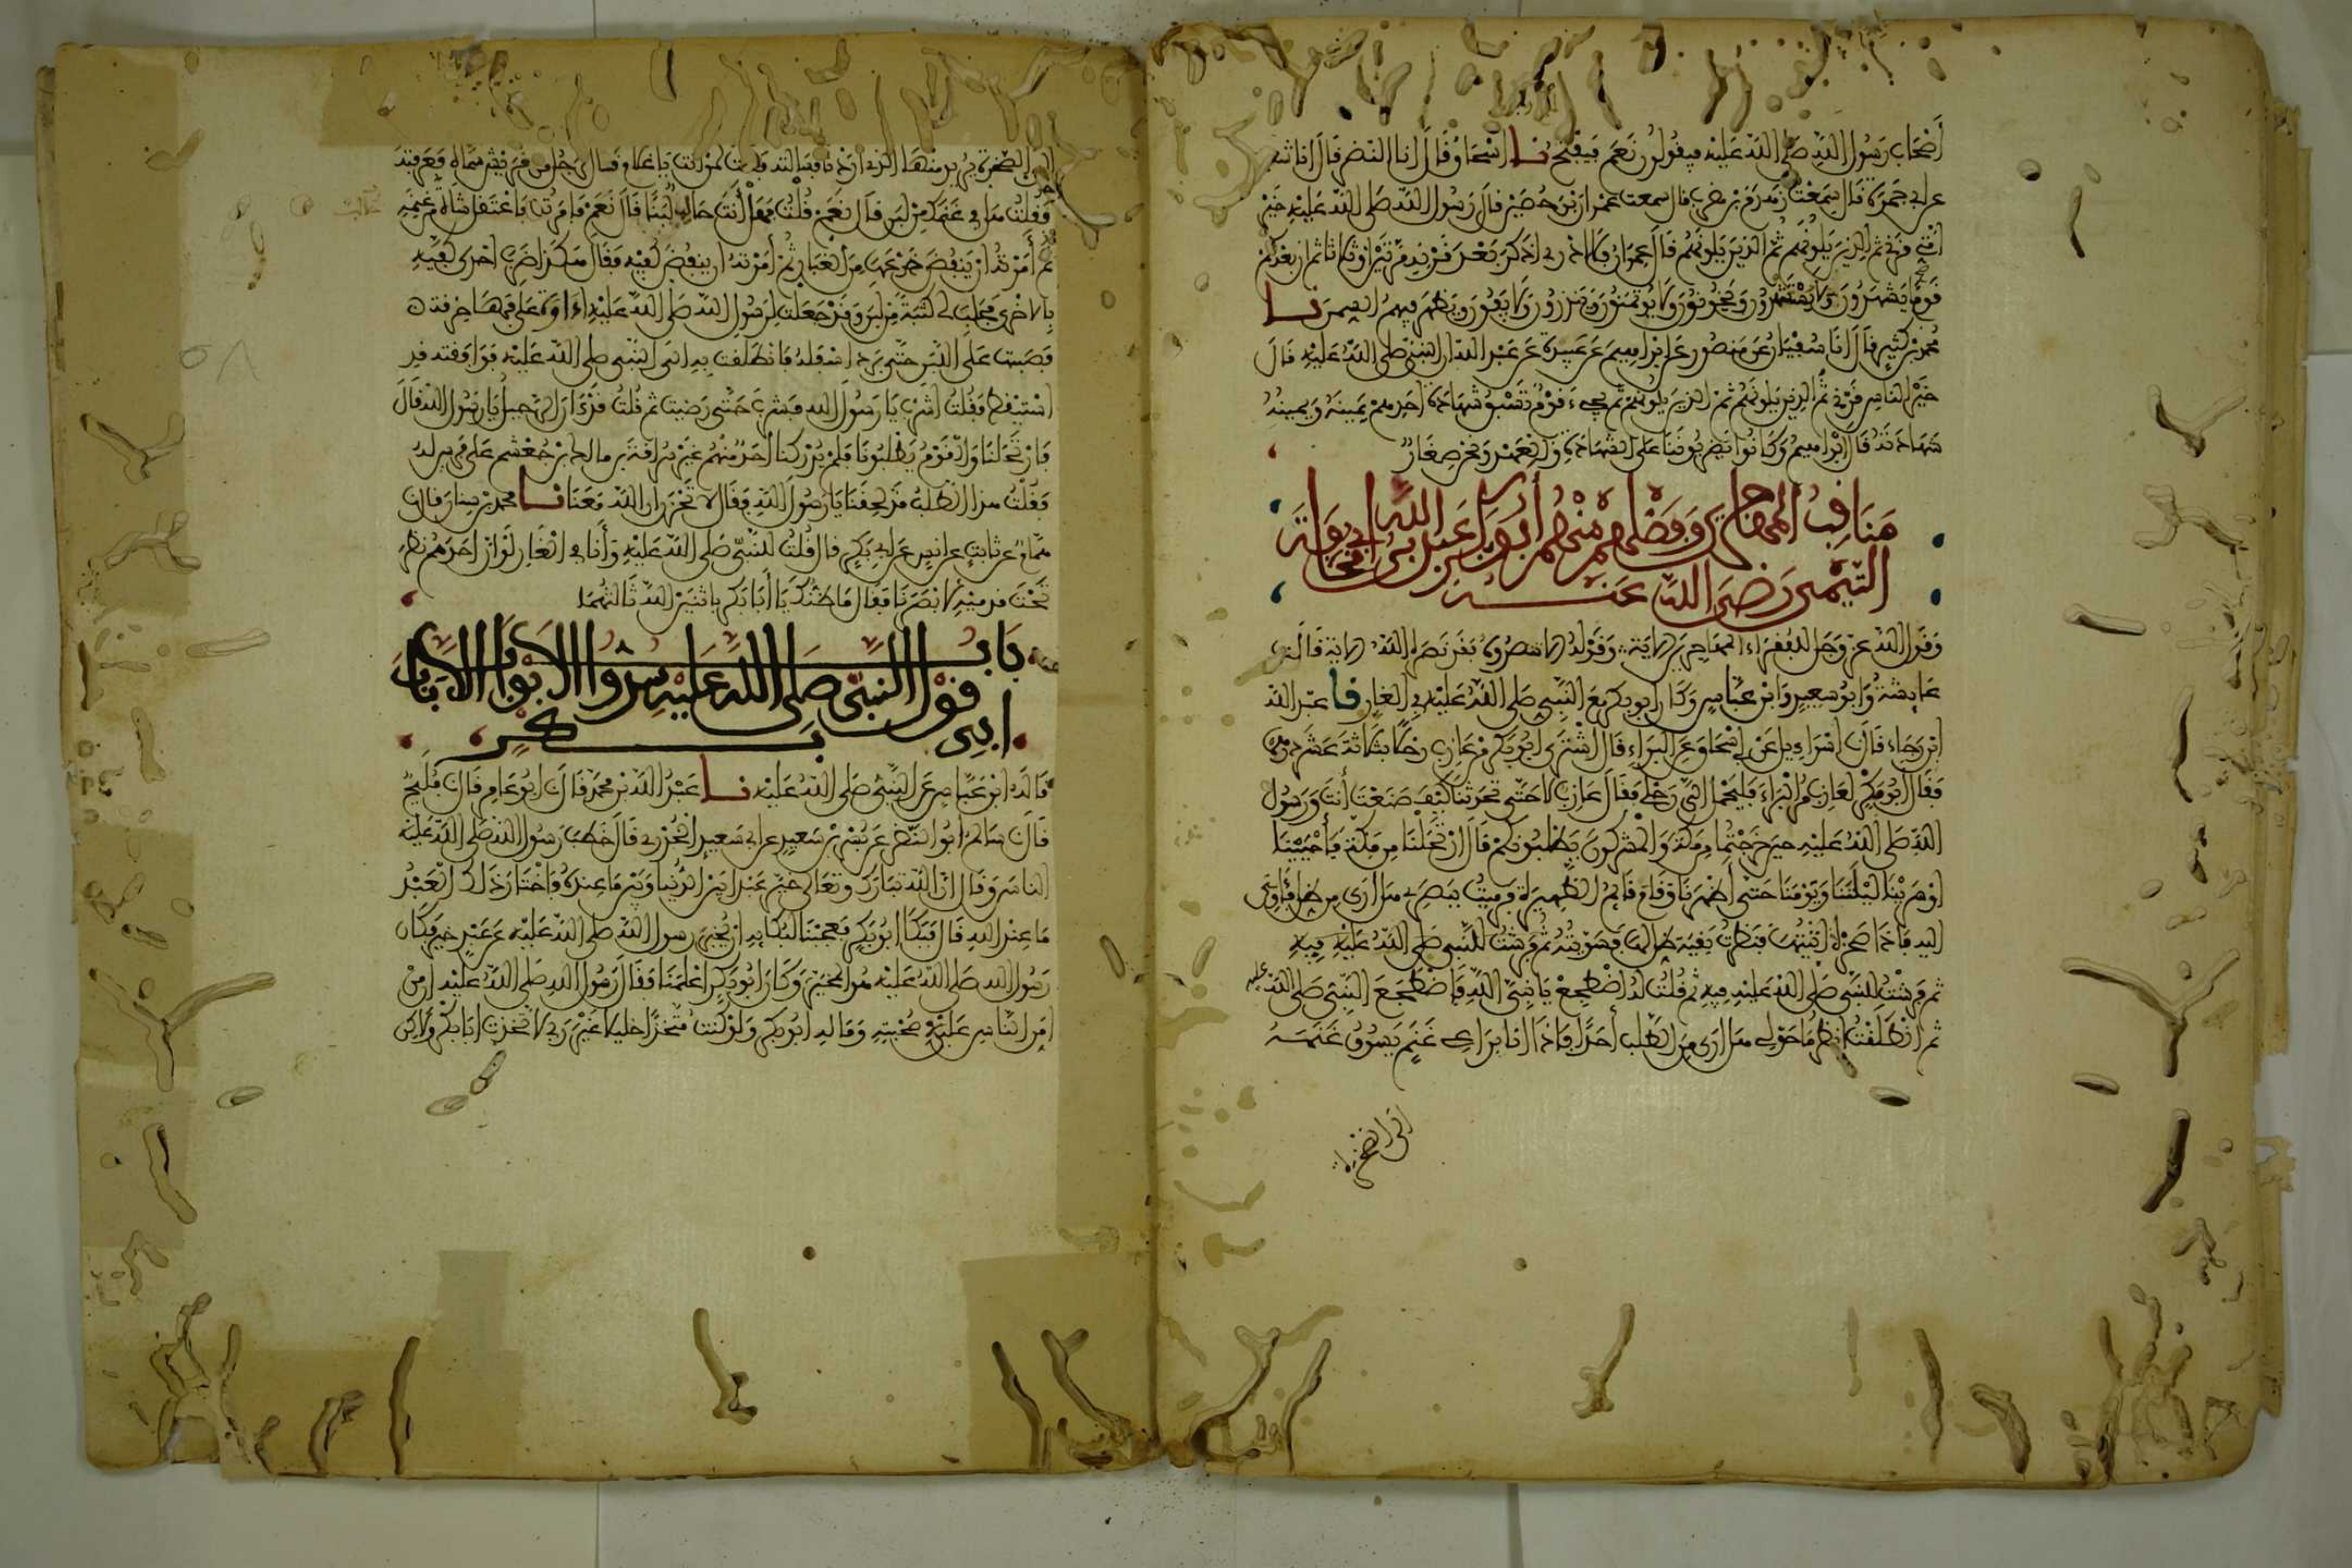 أصحاب رسول الله صلى الله عليه فيقولون نعم فيفتح نا إسحاق قال أنا النضر قال أنا شعبة
عن أبي جمرة قال سمعت زهدم بن مضرب قال سمعت عمران بن حصين قال رسول الله صلى الله عليه خير
أمتي قرني ثم الذين يلونهم ثم الذين يلونهم قال عمران فلا أدري أذكر بعد قرنه مرتين أو ثلاثا ثم إن بعدكم
قوما يشهدون ولا يستشهدون ويخونون ولا يؤتمنون وينذرون ولا يفون ويظهر فيهم السمن نا
محمد بن كثير قال أنا سفيان عن منصور عن إبراهيم عن عبيدة عن عبد الله أن النبي صلى الله عليه قال
خير الناس قرني ثم الذين يلونهم ثم الذين يلونهم ثم يجيء قوم تسبق شهادة أحدهم يمينه ويمينه
شهادته قال إبراهيم وكانوا يضربوننا على الشهادة والعهد ونحن صغار
مناقب المهاجرين وفضلهم منهم أبو بكر عبد الله بن أبي قحافة
التيمي رضي الله عنه
وقول الله عز وجل للفقراء المهاجرين الآية وقوله إلا تنصروه فقد نصره الله الآية قالت
عايشة وأبو سعيد وابن عباس وكان أبو بكر مع النبي صلى الله عليه في الغار نا عبد الله
ابن رجاء قال إسراءيل عن أبي إسحاق عن البراء قال اشترى أبو بكر من عازب رحلا بثلاثة عشر درهما
فقال أبو بكر لعازب مر البراء فليحمل إلي رحلي فقال عازب لا حتى تحدثنا كيف صنعت أنت ورسول
الله صلى الله عليه حين خرجتما من مكة والمشركون يطلبونكم قال ارتحلنا من مكة فأحيينا
أو سرينا ليلتنا ويومنا حتى أظهرنا وقام قائم الظهيرة فرميت ببصري هل أرى من ظل فآوي
إليه فإذا صخرة أتيتها فنظرت بقية ظل لها فسويته ثم فرشت للنبي صلى الله عليه فيه
ثم فرشت للنبي صلى الله عليه فيه ثم قلت له اضطجع يا نبي الله فاضطجع النبي صلى الله عليه
ثم انطلقت أنظر ما حولي هل أرى من الطلب أحدا فإذا أنا براعي غنم يسوق غنمه
إلى الصخرة
إلى الصخرة يريد منها الذي أردنا فسألته فقلت لمن أنت يا غلام فقال لرجل من قريش سماه فعرفته
فقلت هل في غنمك من لبن قال نعم قلت فهل أنت حالب لبنا قال نعم فأمرته فاعتقل شاة من غنمه
ثم أمرته أن ينفض ضرعها من الغبار ثم أمرته أن ينفض كفيه فقال هكذا ضرب إحدى كفيه
بالأخرى فحلب لي كثبة من لبن وقد جعلت لرسول الله صلى الله عليه إداوة على فمها خرقة
فصببت على اللبن حتى برد أسفله فانطلقت به إلى النبي صلى الله عليه فوافقته قد
استيقظ فقلت اشرب يا رسول الله فشرب حتى رضيت ثم قلت قد آن الرحيل يا رسول الله قال
فارتحلنا والقوم يطلبونا فلم يدركنا أحد منهم غير سراقة بن مالك بن جعشم على فرس له
فقلت هذا الطلب قد لحقنا يا رسول الله فقال لا تحزن إن الله معنا نا محمد بن سنان قال نا
همام عن ثابت عن أنس عن أبي بكر قال قلت للنبي صلى الله عليه وأنا في الغار لو أن أحدهم نظر
تحت قدميه لأبصرنا فقال ما ظنك يا أبا بكر باثنين الله ثالثهما
باب قول النبي صلى الله عليه سدوا الأبواب إلا باب
أبي بكر
قاله ابن عباس عن النبي صلى الله عليه نا عبد الله بن محمد قال نا أبو عامر قال نا فليح
قال نا سالم أبو النضر عن بسر بن سعيد عن أبي سعيد الخدري قال خطب رسول الله صلى الله عليه
الناس وقال إن الله تبارك وتعالى خير عبدا بين الدنيا وبين ما عنده فاختار ذلك العبد
ما عند الله قال فبكا أبو بكر فعجبنا لبكايه أن يخبر رسول الله صلى الله عليه عن عبد خير فكان
رسول الله صلى الله عليه هو المخير وكان أبو بكر أعلمنا فقال رسول الله صلى الله عليه إن من
أمن الناس علي في صحبته وماله أبو بكر ولو كنت متخذا خليلا غير ربي لاتخذت أبا بكر ولكن